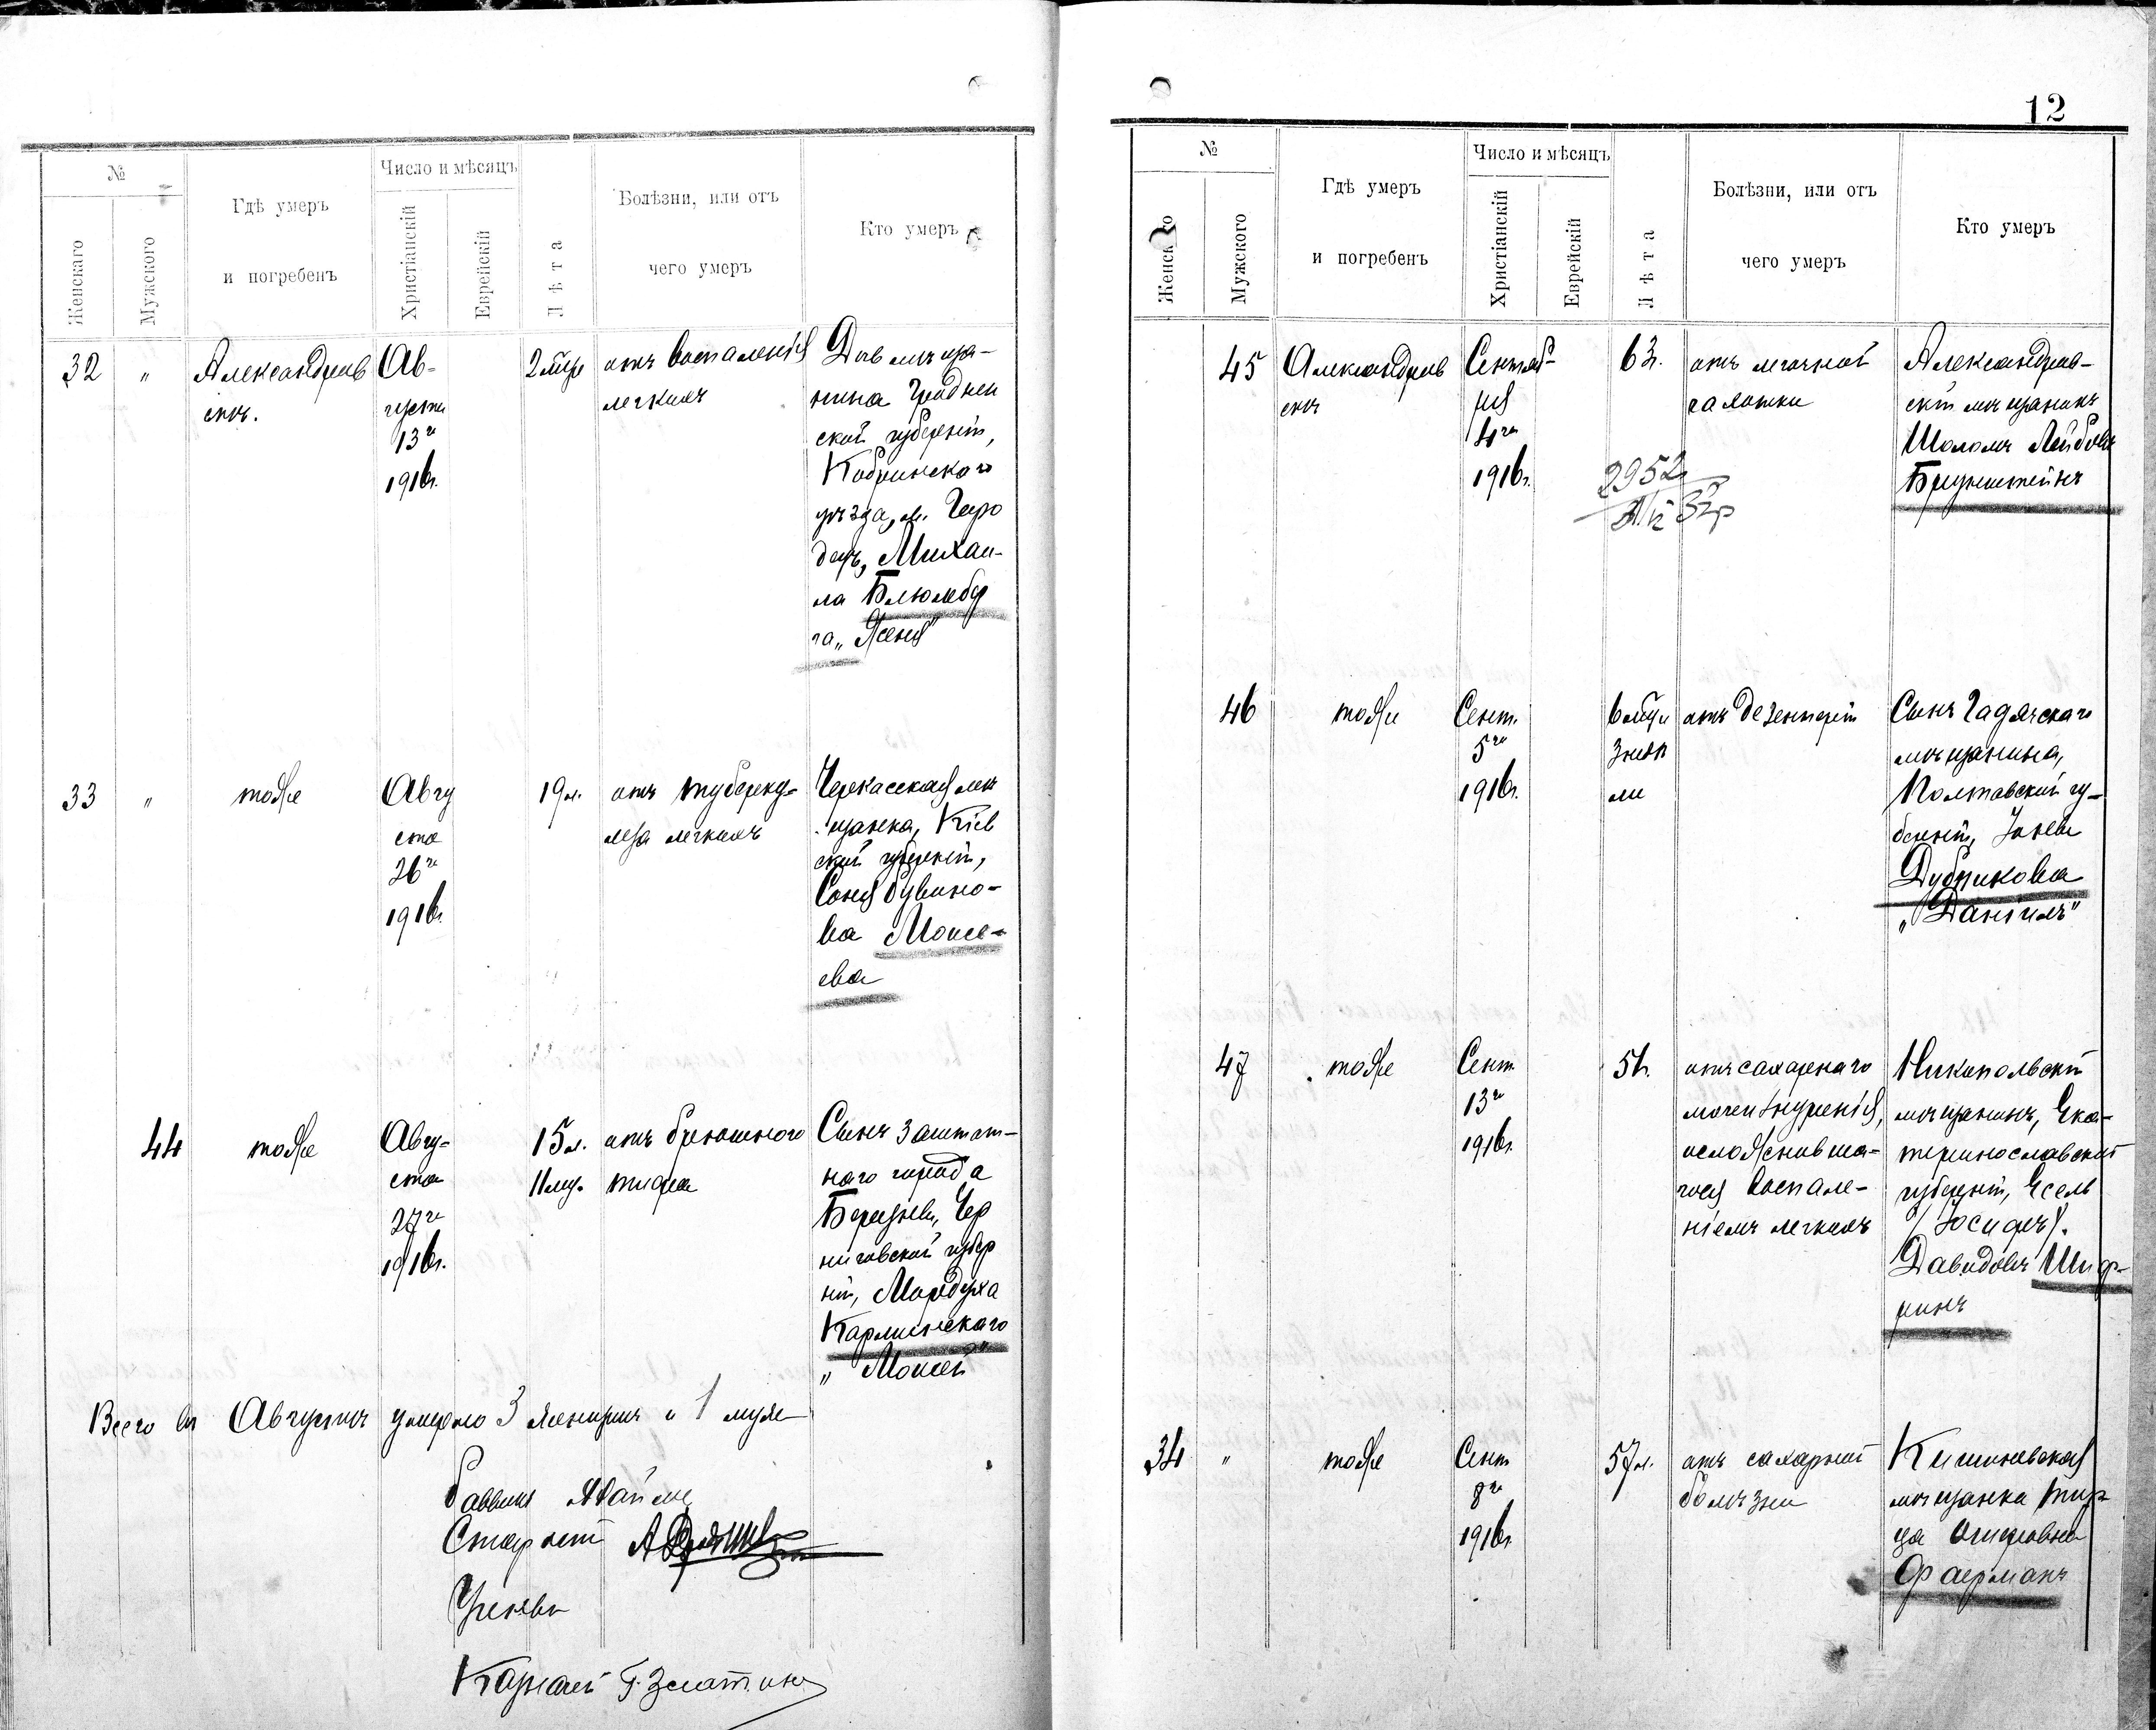 №
Число и мѣсяцъ
Женскаго
Мужского
Гдѣ умеръ
и погребенъ
Христіанскій
Еврейскій
Лѣта
Болѣзни, или отъ
чего умеръ
Кто умеръ
32
"
Александров
скъ.
Ав-
густа
13го
1916г.
2 мѣс
отъ воспаленія
легкихъ
Дѣв мѣща-
нина Гроднен
ской губерніи,
Кобринскаго
уѣзда, м. Горо
децъ, Михаи-
ла Блюмбер
га „Женя"
33
"
тоже
Авгу
ста
26го
1916г.
19л.
отъ туберку-
леза легкихъ
Черкасская мѣ
щанка, Кіев
ской губерніи,
Соня Рувино-
ва Моисе-
ева
44
тоже
Авгу-
ста
27го
1916г.
15л.
11 мѣс.
отъ брюшного
тифа
Сынъ заштат-
наго города
Березны, Чер
ниговской губер
ніи, Мордуха
Карлинскаго
„Моисей"
Всего въ Августѣ умерло 3 женщины и 1 муж
Раввинъ
Староста
Ученый
Казначей Г. Златкин
12
№
Число и мѣсяцъ
Женскаго
Мужского
Гдѣ умеръ
и погребенъ
Христіанскій
Еврейскій
Лѣта
Болѣзни, или отъ
чего умеръ
Кто умеръ
45
Александров
скъ
Сентяб-
ря
4го
1916г.
63г.
2952
отъ легочной
чахотки
Александров-
скій мѣщанинъ
Шоломъ Лейбовъ
Бруштейнъ
46
тоже
Сент.
5го
1916г.
6 мѣс
3 недѣ
ли
отъ дезентеріи
Сынъ Гадячскаго
мѣщанина,
Полтавской гу-
берніи,
Дубникова
„Даніилъ"
47
тоже
Сент.
13го
1916г.
51г.
отъ сахарнаго
мочеизнуренія,
осложнивша-
гося воспале-
ніемъ легкихъ
Никопольскій
мѣщанинъ, Ека-
теринославской
губерніи, Есель
/Іосифъ/.
Давидовъ Шиф-
ринъ
34
"
тоже
Сент
8го
1916г.
57л.
отъ сахарной
болѣзни
Кишиневская
мѣщанка Тир
ца Осиповна
Фаерманъ